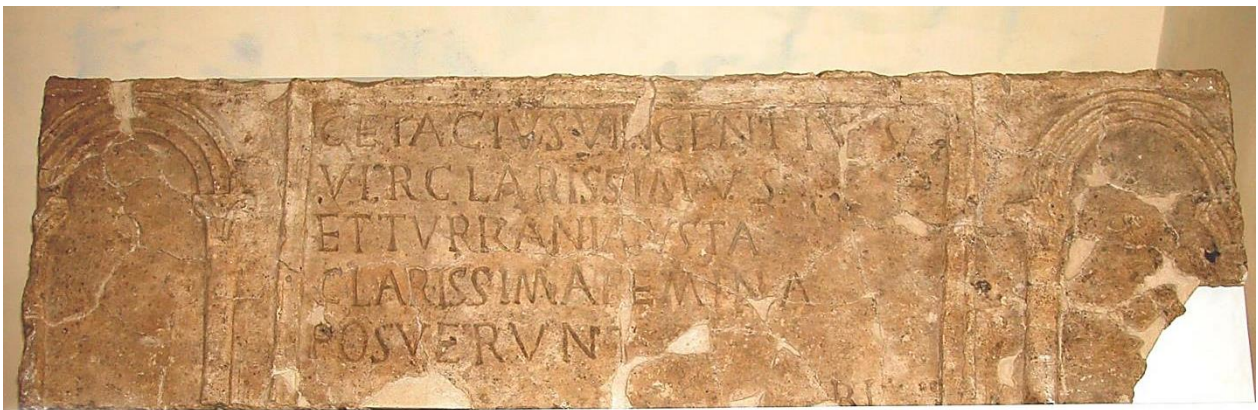 CETACIVS VINCENTIVS
VIR CLARISSIMVS
ET TVRRANIA IVSTA
CLARISSIMA FEMINA
POSVERVNT